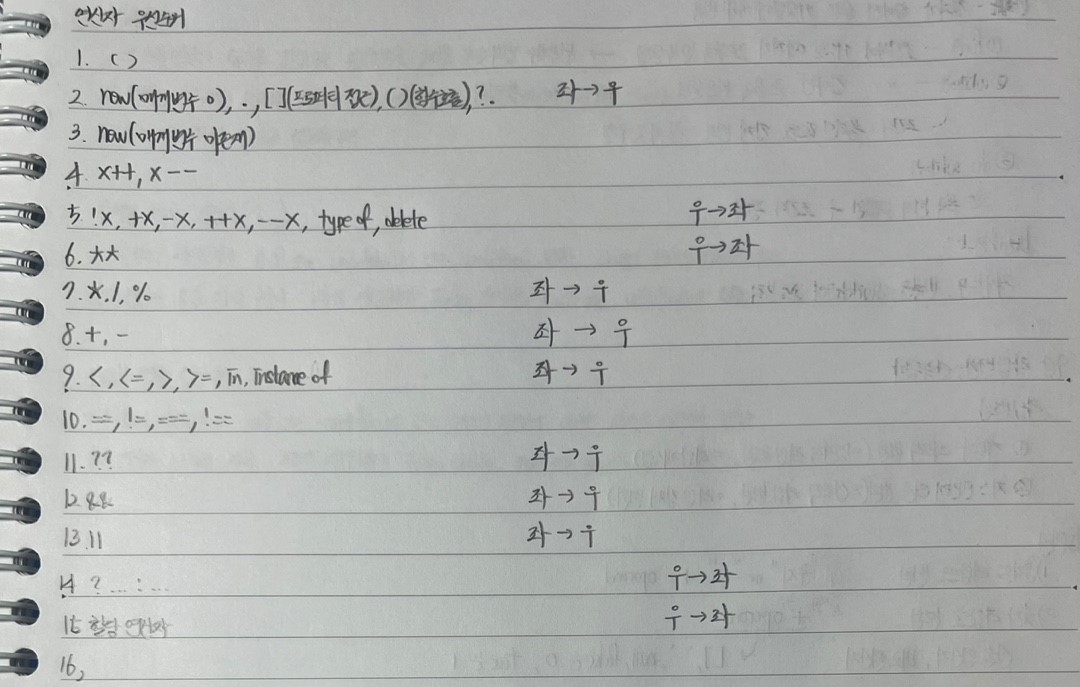 연산자 우선순위
1. ( )
2. new(매개변수 o), ., [ ](프로퍼티 접근), ( )(함수호출), ?. 좌→우
3. new(매개변수 미존재)
4. x++, x--
5 !x, +x, -x, ++x, --x, type of, delete 우→좌
6. ** 우→좌
7. *, /, % 좌 → 우
8. +, - 좌 → 우
9. <, <=, >, >=, in, instance of 좌 → 우
10. ==, !=, ===, !==
11. ?? 좌 → 우
12. && 좌 → 우
13. || 좌 → 우
14 ? ... : ... 우→좌
15 할당 연산자 우→좌
16,